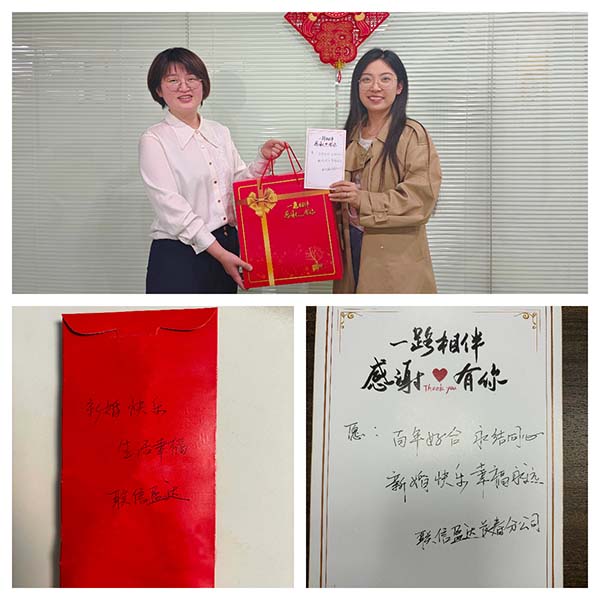 一路相伴
感谢有你
一路相伴
感谢有你
新婚快乐
生活幸福
联信盈达
一路相伴
感谢 有你
Thank you
愿：百年好合 永结同心
新婚快乐 幸福永远
联信盈达长春分公司